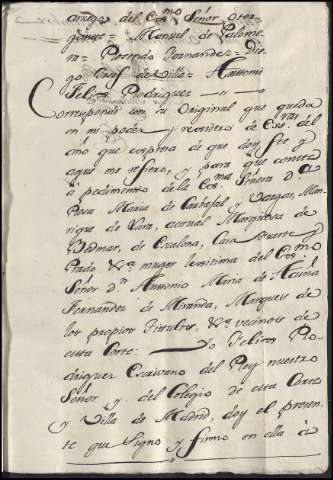 del Exmo Señor otor-
gante = Manuel de Palome-
ra = Potardo Fernandez = Die-
go de Villa = Anttonio
Felices Rodriguez
Corresponde con su Original que queda
en mi poder y rexistro de Escras del
año que expresa de que doy fee y
aque me refiero, y para que conste
â pedimento de la Exma Señora Da
Rosa Maria de Carbajal y Vargas, Man-
rique de Lara, actual Marquesa de
Bedmar, de Escalona, Casa fuerte y
Prado &a muger lexitima del Exmo
Señor Dn Anttonio Maria de
Fernandez de Miranda, Marques de
los propios Titulos, &a vecinos de
esta Corte: Yo Felices Ro-
driguez Escrivano del Rey nuestro
Señor y del Colegio de esta Corte
y Villa de Madrid, doy el presen-
te que Signo y firmo en ella â